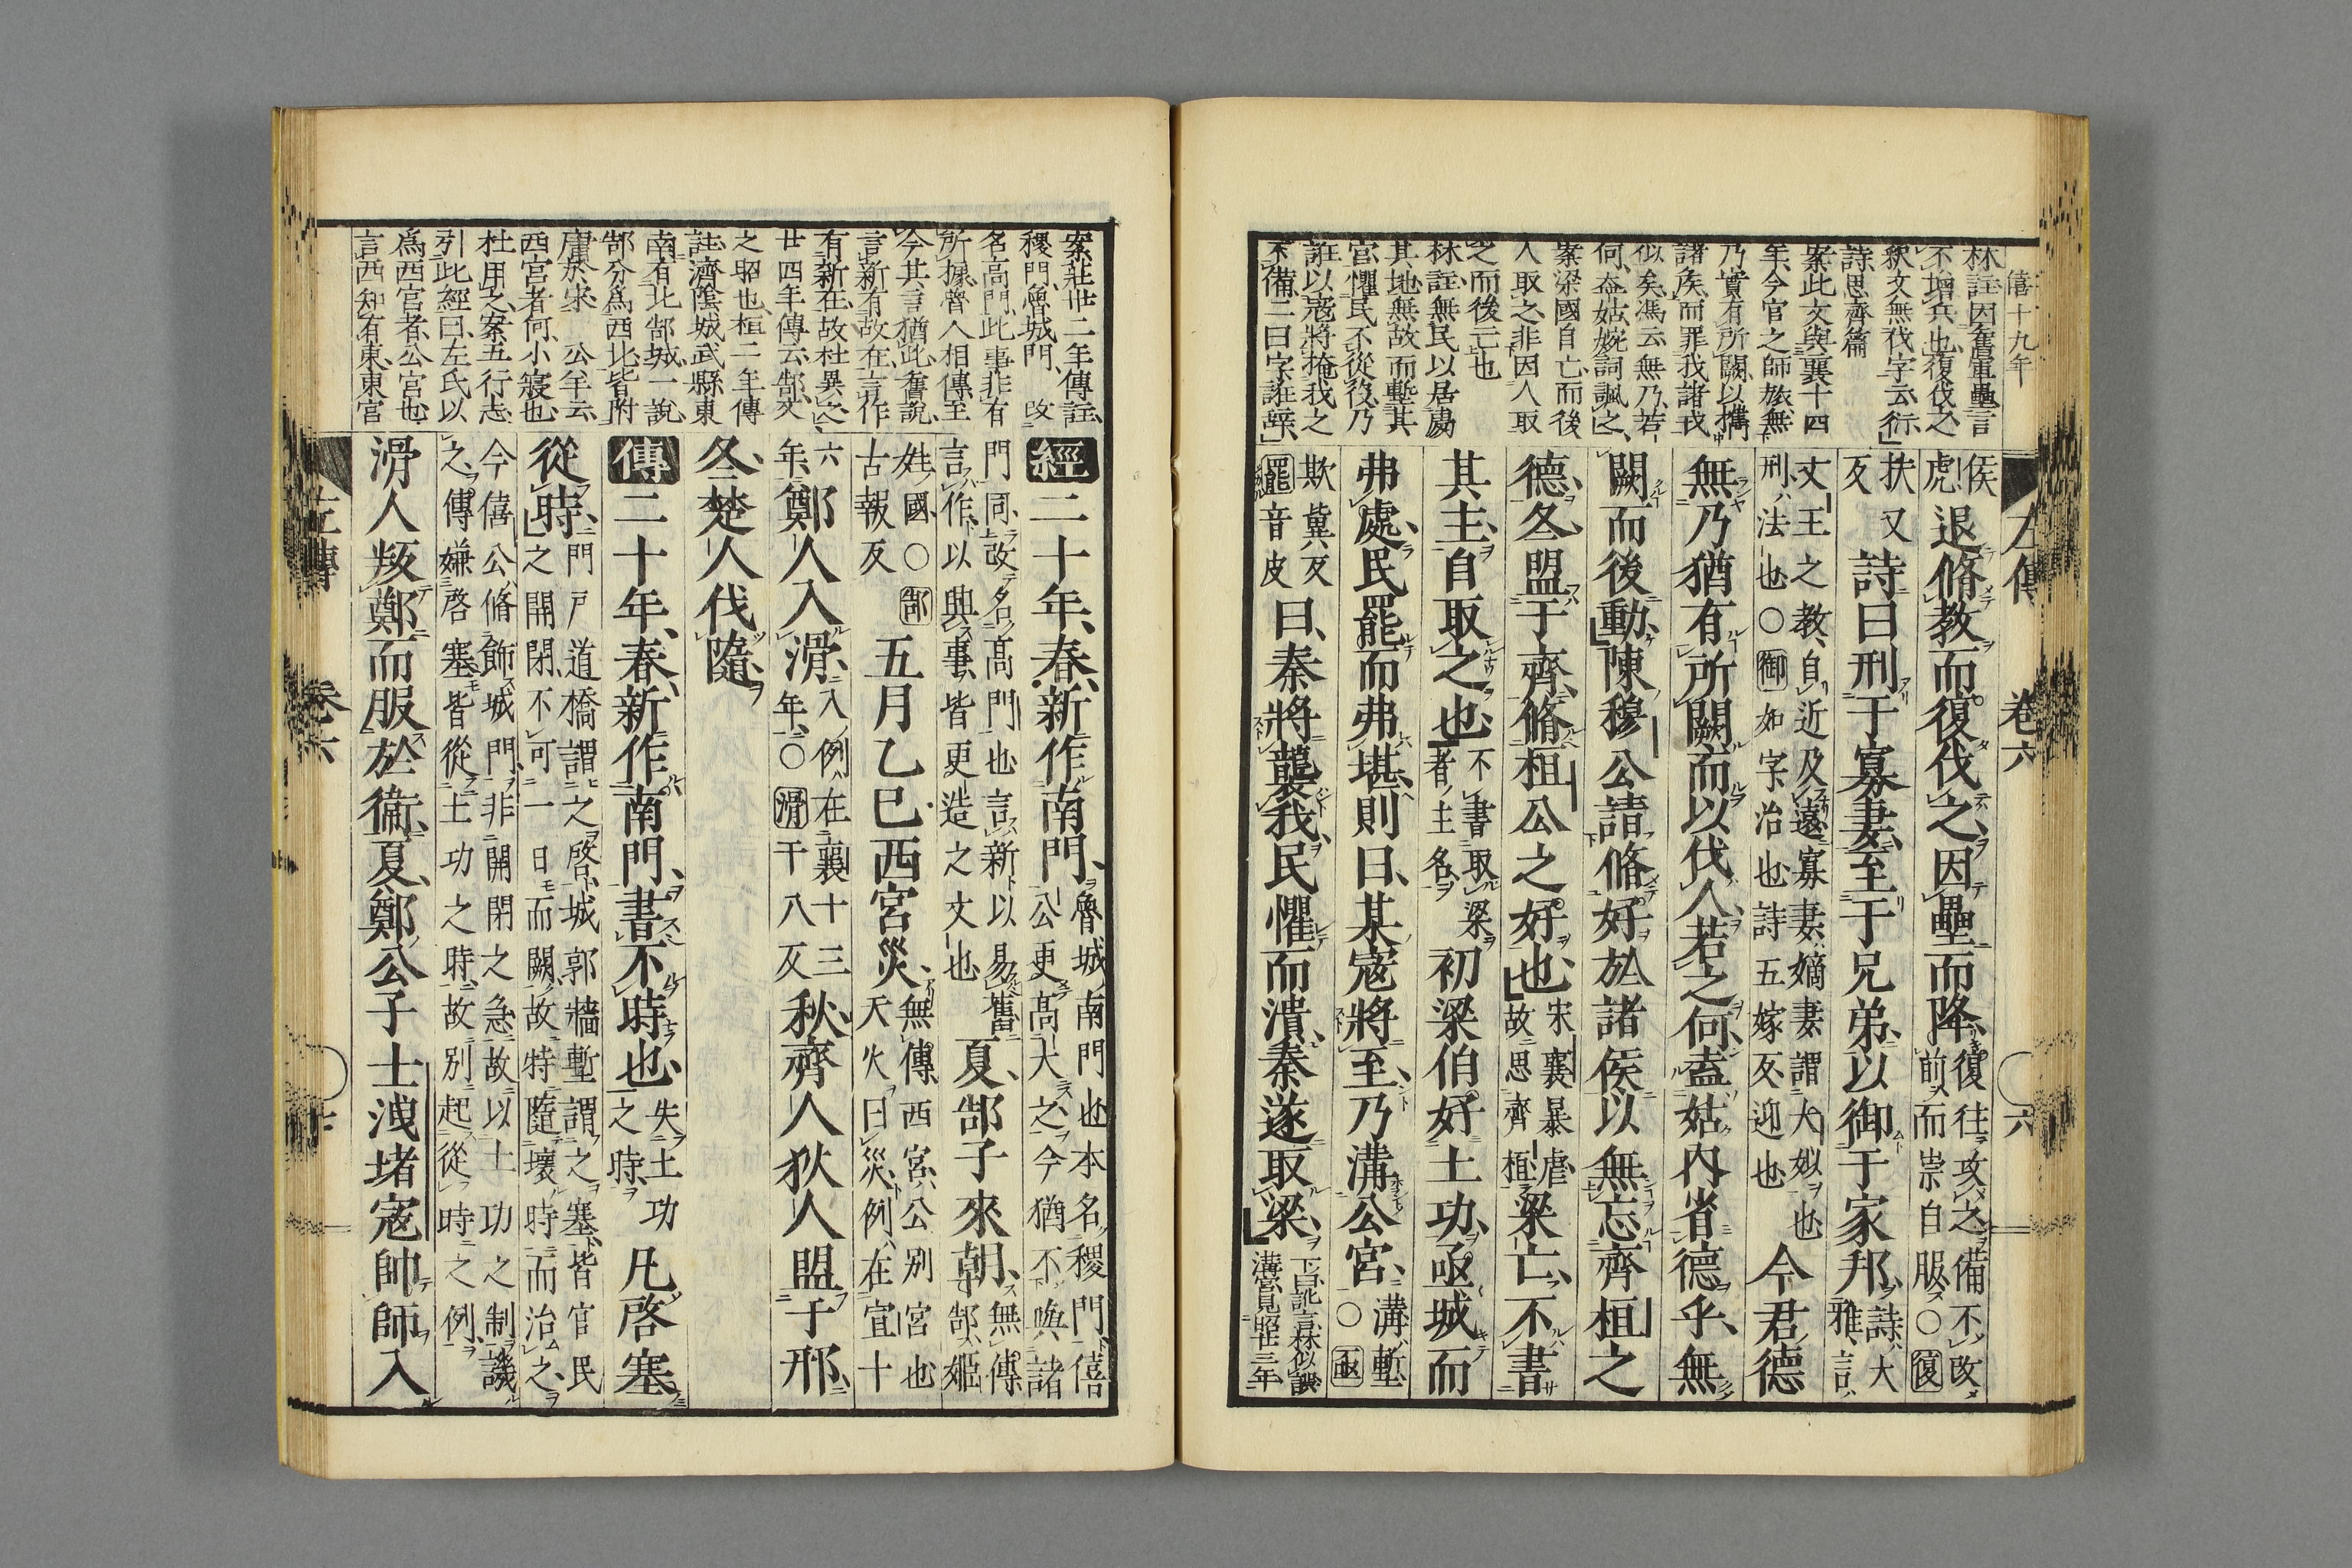 僖十九年
左傳
卷六
六
林註因舊軍壘言
不增兵也復伐之
釈文無伐字云衍
詩思齊篇
案此文與襄十四
年今官之師旅無
乃實有所闕以攜
諸矦而罪我諸戎
似矣馮云無乃若
何盍姑婉詞諷之
案梁國自亡而後
人取之非因人取
之而後亡也
林註無民以居處
其地無故而塹其
宮懼民不從役乃
誑以寇將掩我之
不備二曰字誑辞
侯虎退脩教而復伐之因壘而降復往攻之備不改前而崇自服○復
扶又反詩曰刑于寡妻至于兄弟以御于家邦詩大雅言
文王之教自近及遠寡妻嫡妻謂大姒也刑法也○御如字治也詩五嫁反迎也今君德
無乃猶有所闕而以伐人若之何盍姑內省德乎無
闕而後動陳穆公請脩好於諸侯以無忘齊桓之
德冬盟于齊脩桓公之好也宋襄暴虐故思齊桓梁亡不書
其主自取之也不書取梁者主名初梁伯好土功亟城而
弗處民罷而弗堪則曰某寇將至乃溝公宮溝塹○亟
欺冀反罷音皮曰秦將襲我民懼而潰秦遂取梁
經二十年春新作南門魯城南門也本名稷門僖公更高大之今猶不與諸
門同改名高門也言新以易舊言作以興事皆更造之文也夏郜子來朝無傳郜姬
姓國○郜古報反五月乙巳西宮災無傳西宮公別宮也天火曰災例在宣十
六年鄭人入滑入例在襄十三年○滑于八反秋齊人狄人盟于邢
冬楚人伐隨
傳二十年春新作南門書不時也失土功之時凡啓塞
從時門戶道橋謂之啓城郭牆塹謂之塞皆官民之開閉不可一日而闕故特隨壞時而治之
今僖公脩飾城門非開閉之急故以土功之制譏之傳嫌啓塞皆從土功之時故別起從時之例
滑人叛鄭而服於衞夏鄭公子士洩堵寇帥師入
案莊卅二年傳註
稷門魯城門改
名高門此事非有
所據魯人相傳至
今其言猶此舊說
言新有故在言作
有新在故杜異之
廿四年傳云郜文
之昭也桓二年傳
註濟陰城武縣東
南有北郜城一說
郜分爲西北皆附
庸於宋 公羊云
西宮者何小寢也
杜用之案五行志
引此經曰左氏以
爲西宮者公宮也
言西知有東東宮
左傳
卷六